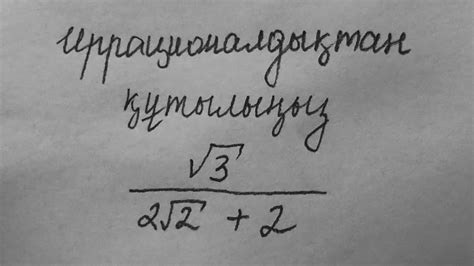 Иррационалдықтан
құтылыңыз
√3
2√2 + 2